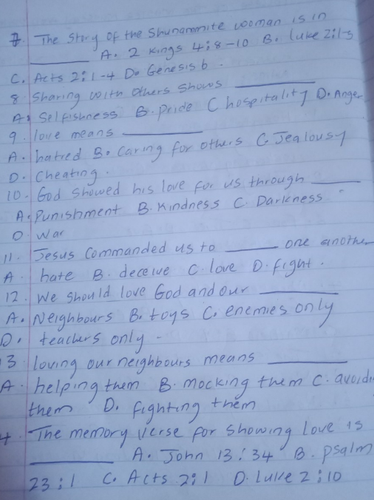 7 The story of the Shunammite woman is in
______ A. 2 kings 4:8-10 B. Luke 2:1-5
C. Acts 2:1-4 D. Genesis 6.
8. Sharing with others shows ______
A. Selfishness B. Pride C hospitality D. Anger
9. love means ______
A. hatred B. Caring for others C. Jealousy
D. Cheating.
10. God showed his love for us through ______
A. Punishment B. Kindness C. Darkness
D war
11. Jesus Commanded us to ______ one another
A. hate B. deceive C. love D. fight.
12. We should love God and our ______
A. Neighbours B. toys C. enemies only
D. teachers only.
13 loving our neighbours means ______
A. helping them B. mocking them C. avoidi
them D. fighting them
4. The memory verse for showing love is
______ A. John 13:34 B. Psalm
23:1 C. Acts 2:1 D. Luke 2:10